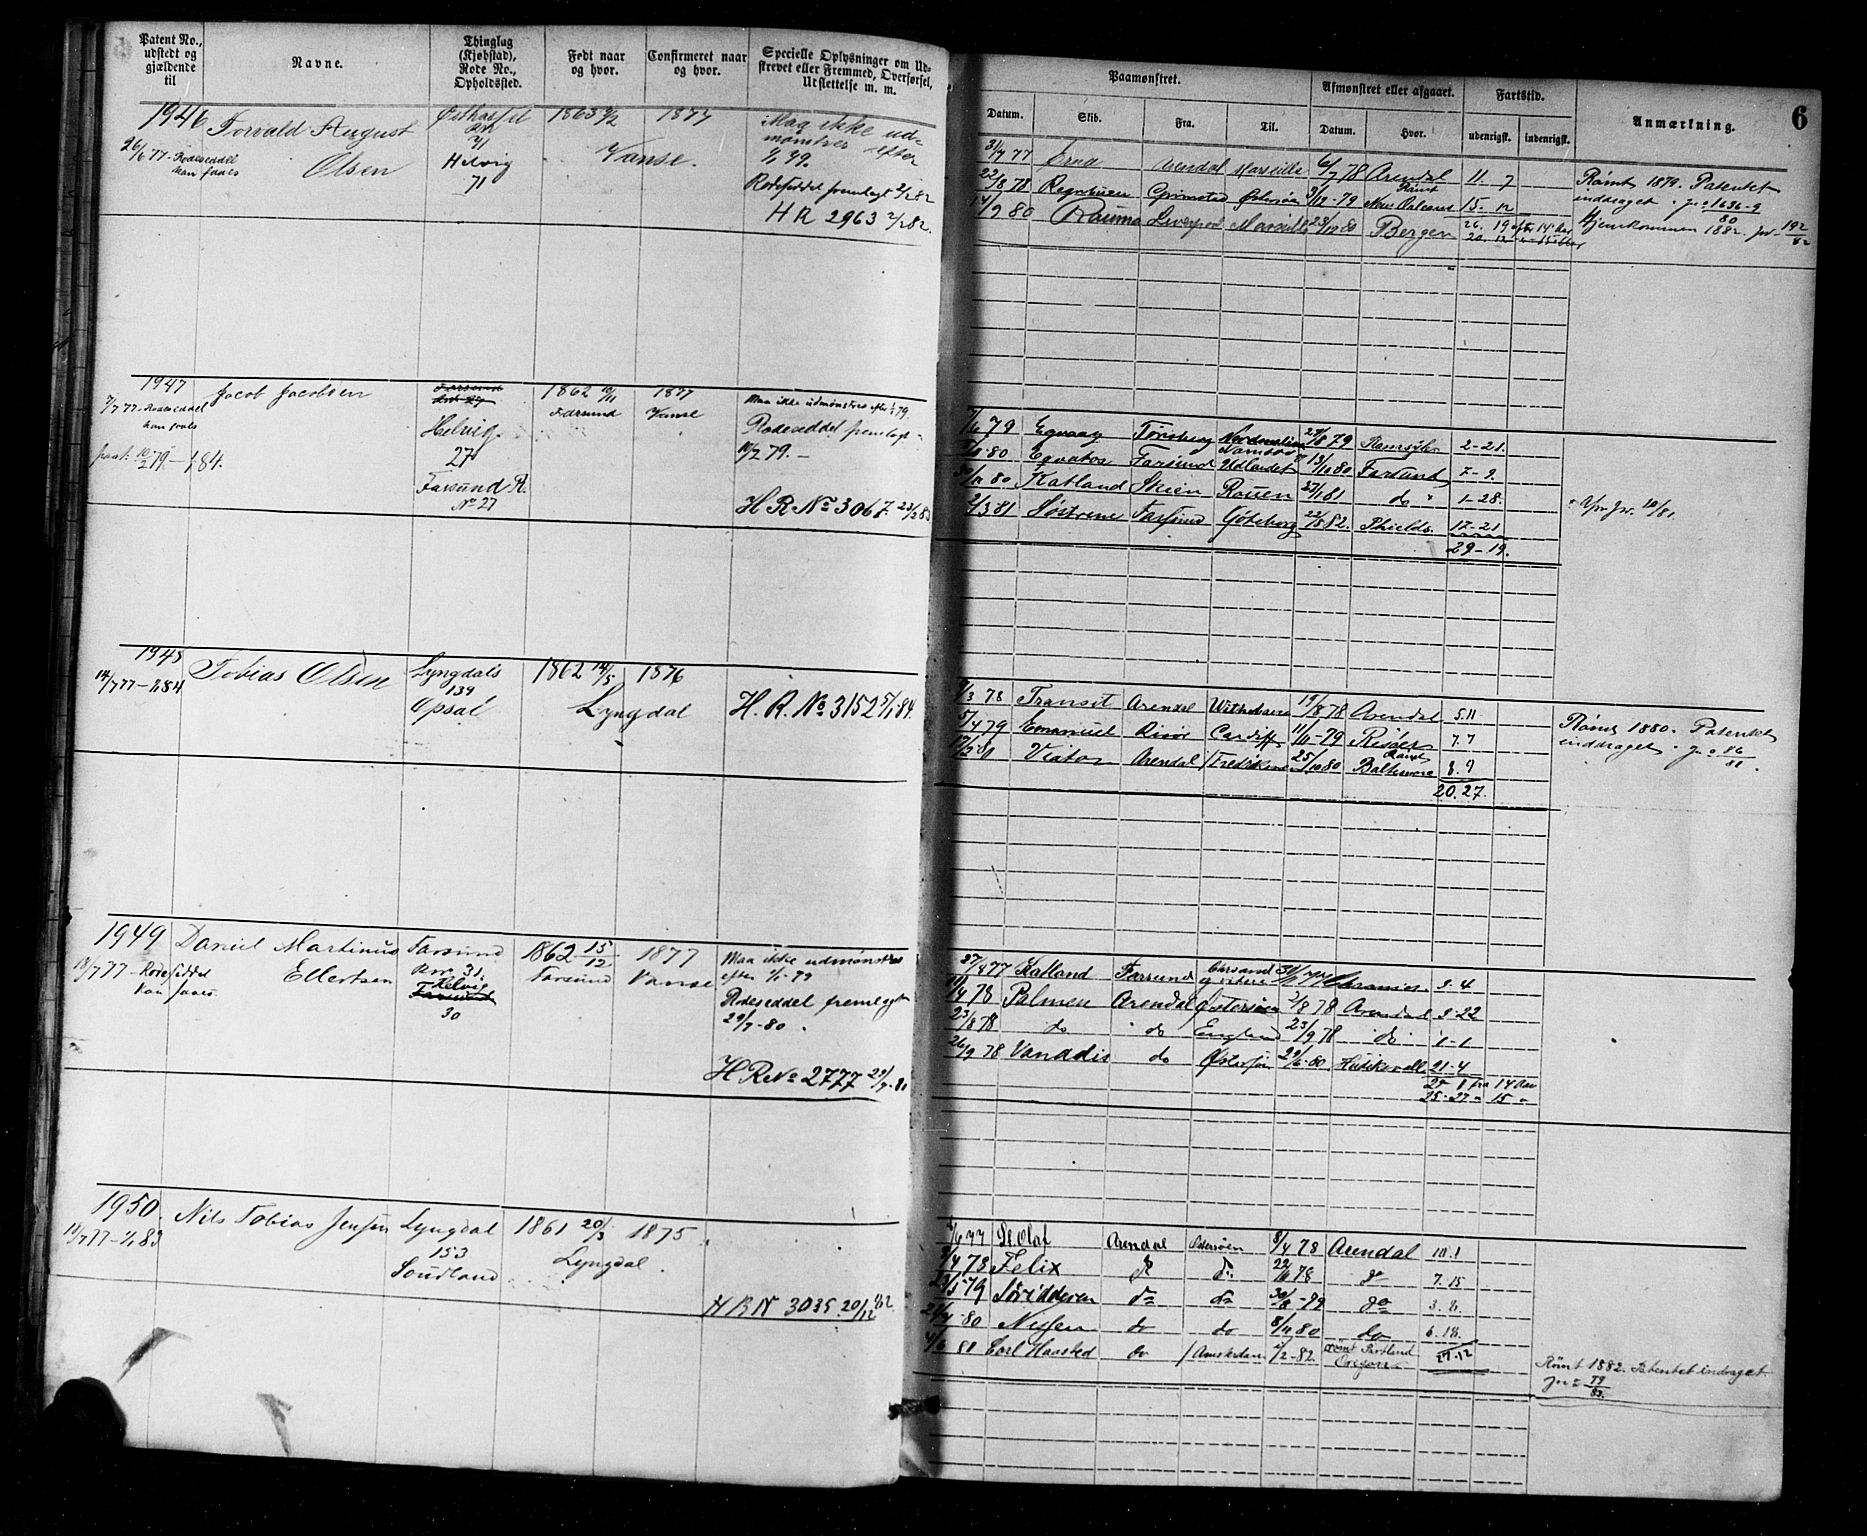 Patent No., udstedt og gjældende til
Navne.
Thinglag (Kjøbstad), Rode No., Opholdssted.
Født naar og hvor.
Confirmeret naar og hvor.
Specielle Oplysninger om Udstrevet eller Fremmed, Overførsel, Udslettelse m. m.
Paamønstret.
Datum.
Skib.
Fra.
Til.
Afmønstret eller afgaaet.
Datum.
Hvor.
Fartstid.
udenrigsk.
indenrigsk.
Anmærkning.
6
1946
26/6 77 - Rodeseddel
kan faaes
Torvald August
Olsen
Østhassel
71
Helvig
71
1863
1877
Vanse.
Maa ikke ud-
mønstres efter
79.
Rodeseddel fremlagt 2/2 82
H R 2963 2/2 82.
31/7 77 Erna Arendal Marseille 6/7 78 Arendal 11 7
22/8 78 Grimstad Østersøen 9/12 - 79 Rømt New Orleans 15 - 12
14/9 80 Rauma Liverpool Marseille 23/12 80 Bergen 26. 19
Rømt 1879. Patentet
inddraget
Hjemkommen 1882.
1947
7/7 77 - Rodeseddel
kan faaes
pat. 10/2 79. - 1/1 84.
Jacob Jacobsen
Farsund
Helvig
27
Farsund R.
No 27
1862 10/11
Farsund
1877
Vanse
Maa ikke udmønstres efter 1/1 79.
Rodeseddel fremlagt
10/2 79. -
H R No 3067. 23/2 83
7/6 79 Tønsberg 27/8 79 2 - 21.
80 Farsund Udlandet 13/10 80 Farsund 7 - 9.
30/11 80 Katland Skien Rouen 27/1 81 do 1 - 28.
2/3 81 Søstrene Farsund Göteborg 22/8 82. Shields. 17 - 21
29 - 19.
1948
14/7 77 - 1/1 84
Tobias Olsen
Lyngdals
139
Opsal
1862 14/5
1876
Lyngdal
H. R. No 3152 5/1 84.
9/3 78 Transit Arendal 19/8 78 Arendal 5. 11
5/4 79 Emanuel Risør Cardiff 11/11 - 79 Risøer 7. 7
17/2 80 Viator Arendal 25/10 80 Rømt Baltimore 8. 9
20. 27.
Rømt 1880. Patentet
inddraget
1949
18/7 77 - Rodeseddel
kan faaes.
Daniel Martinus
Ellertsen
Farsund
31.
Helvig
Farsund
30
1862 15/12
Farsund
1877
Vanse
Maa ikke udmønstres
efter 1/1 - 79
Rodeseddel fremlagt
29/7 - 80
H R No 2777 29/7 - 80
27/7 77 Katland Farsund 3 - 4
19/4 78 Palmen Arendal Østersøen 2/8 78 Arendal 3 - 22
23/8 78 do do England 23/9 78 do 1 - 1
26/9 78 Vanadis do Østersøen 29/6 - 80 Hudiksvall 21 - 4
25 - 27 " 15 "
1950.
18/7 77 - 1/1 83
Nils Tobias Jensen
Lyngdal
153
Soudland
1861 20/3
Lyngdal.
1875.
H R N 3035. 20/12 82
77 St. Olaf Arendal Østersøen 8/4 78 Arendal 10. 1
8/4 78 Felix do do 78 do 7. 15
23/5 79 do do 30/8 - 79 do 3. 8.
21/4 - 80 Nissen do do 8/11 80 do 6. 18.
4/6 81 Carl Haasted do Amsterdam 2/2 - 82. rømt Portland Oregon 27. 12
Rømt 1882. Patentet inddraget.